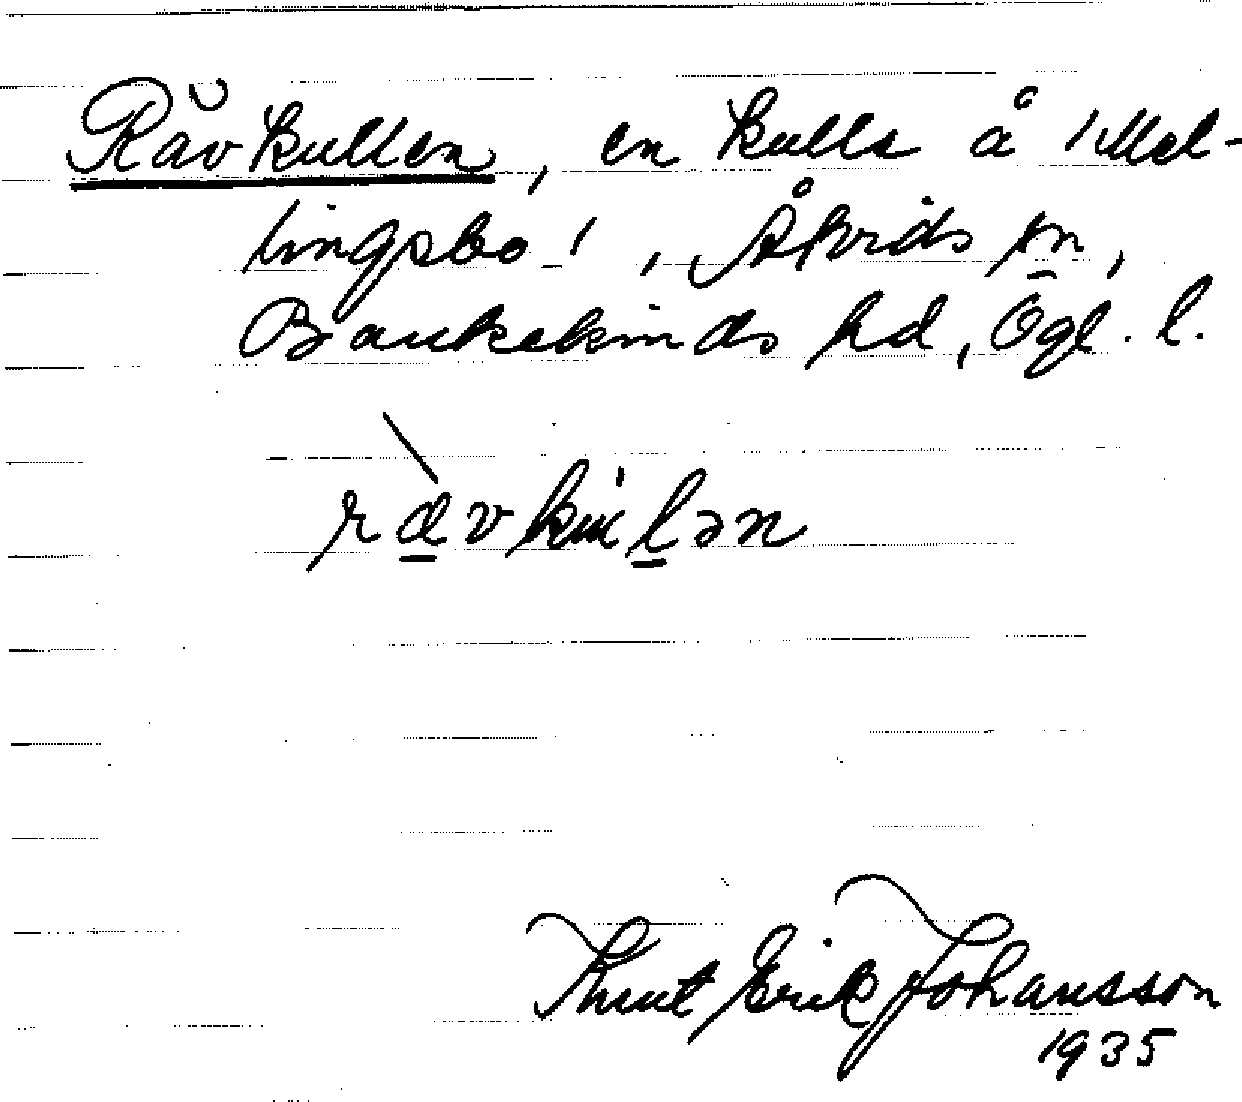 Rävkullen, en kulle å 'Mel-
lingsbo', Åtvids sn,
Bankekinds hd, Ögl. l.
rävkulən
Knut Erik Johansson
1935